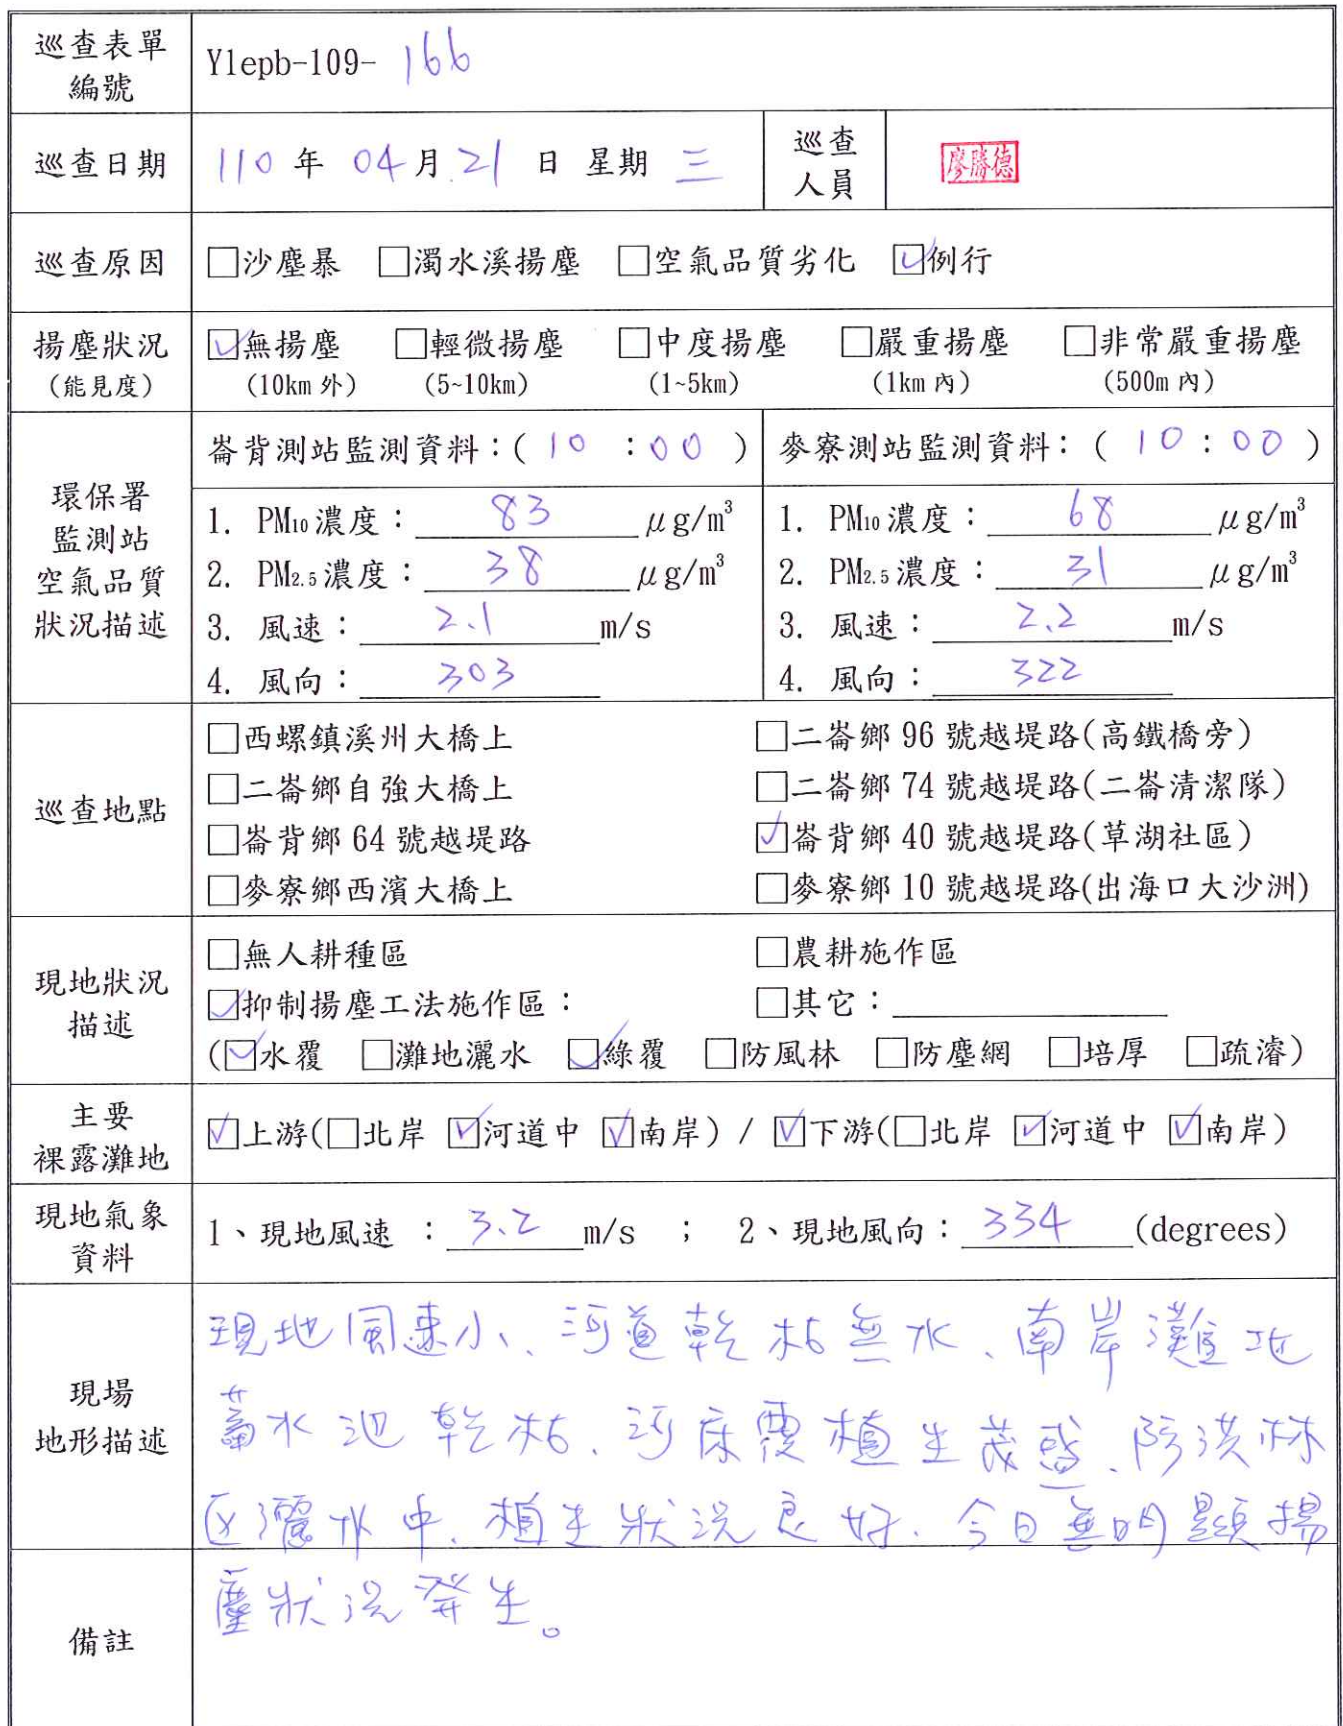 巡查表單
編號
Ylepb-109- 166
巡查日期
110 年 04 月 21 日 星期 三
巡查
人員
廖勝德
巡查原因
□沙塵暴 □濁水溪揚塵 □空氣品質劣化 ☑例行
揚塵狀況
(能見度)
☑無揚塵 □輕微揚塵 □中度揚塵 □嚴重揚塵 □非常嚴重揚塵
(10km 外) (5~10km) (1~5km) (1km 內) (500m 內)
環保署
監測站
空氣品質
狀況描述
崙背測站監測資料：( 10 : 00 )
1. PM₁₀濃度： 83 μg/m³
2. PM₂.₅濃度： 38 μg/m³
3. 風速： 2.1 m/s
4. 風向： 303
麥寮測站監測資料： ( 10 : 00 )
1. PM₁₀濃度： 68 μg/m³
2. PM₂.₅濃度： 31 μg/m³
3. 風速： 2.2 m/s
4. 風向： 322
巡查地點
□西螺鎮溪州大橋上 □二崙鄉 96 號越堤路(高鐵橋旁)
□二崙鄉自強大橋上 □二崙鄉 74 號越堤路(二崙清潔隊)
□崙背鄉 64 號越堤路 ☑崙背鄉 40 號越堤路(草湖社區)
□麥寮鄉西濱大橋上 □麥寮鄉 10 號越堤路(出海口大沙洲)
現地狀況
描述
□無人耕種區 □農耕施作區
☑抑制揚塵工法施作區： □其它：
(☑水覆 □灘地灑水 ☑綠覆 □防風林 □防塵網 □培厚 □疏濬)
主要
裸露灘地
☑上游(□北岸 ☑河道中 ☑南岸) / ☑下游(□北岸 ☑河道中 ☑南岸)
現地氣象
資料
1、現地風速 ： 3.2 m/s ； 2、現地風向： 334 (degrees)
現場
地形描述
現地風速小、河道乾枯無水、南岸灘地
蓄水池乾枯、河床覆植生茂盛、防洪林
区灑水中、植生狀況良好、今日無明顯揚
塵狀況發生。
備註